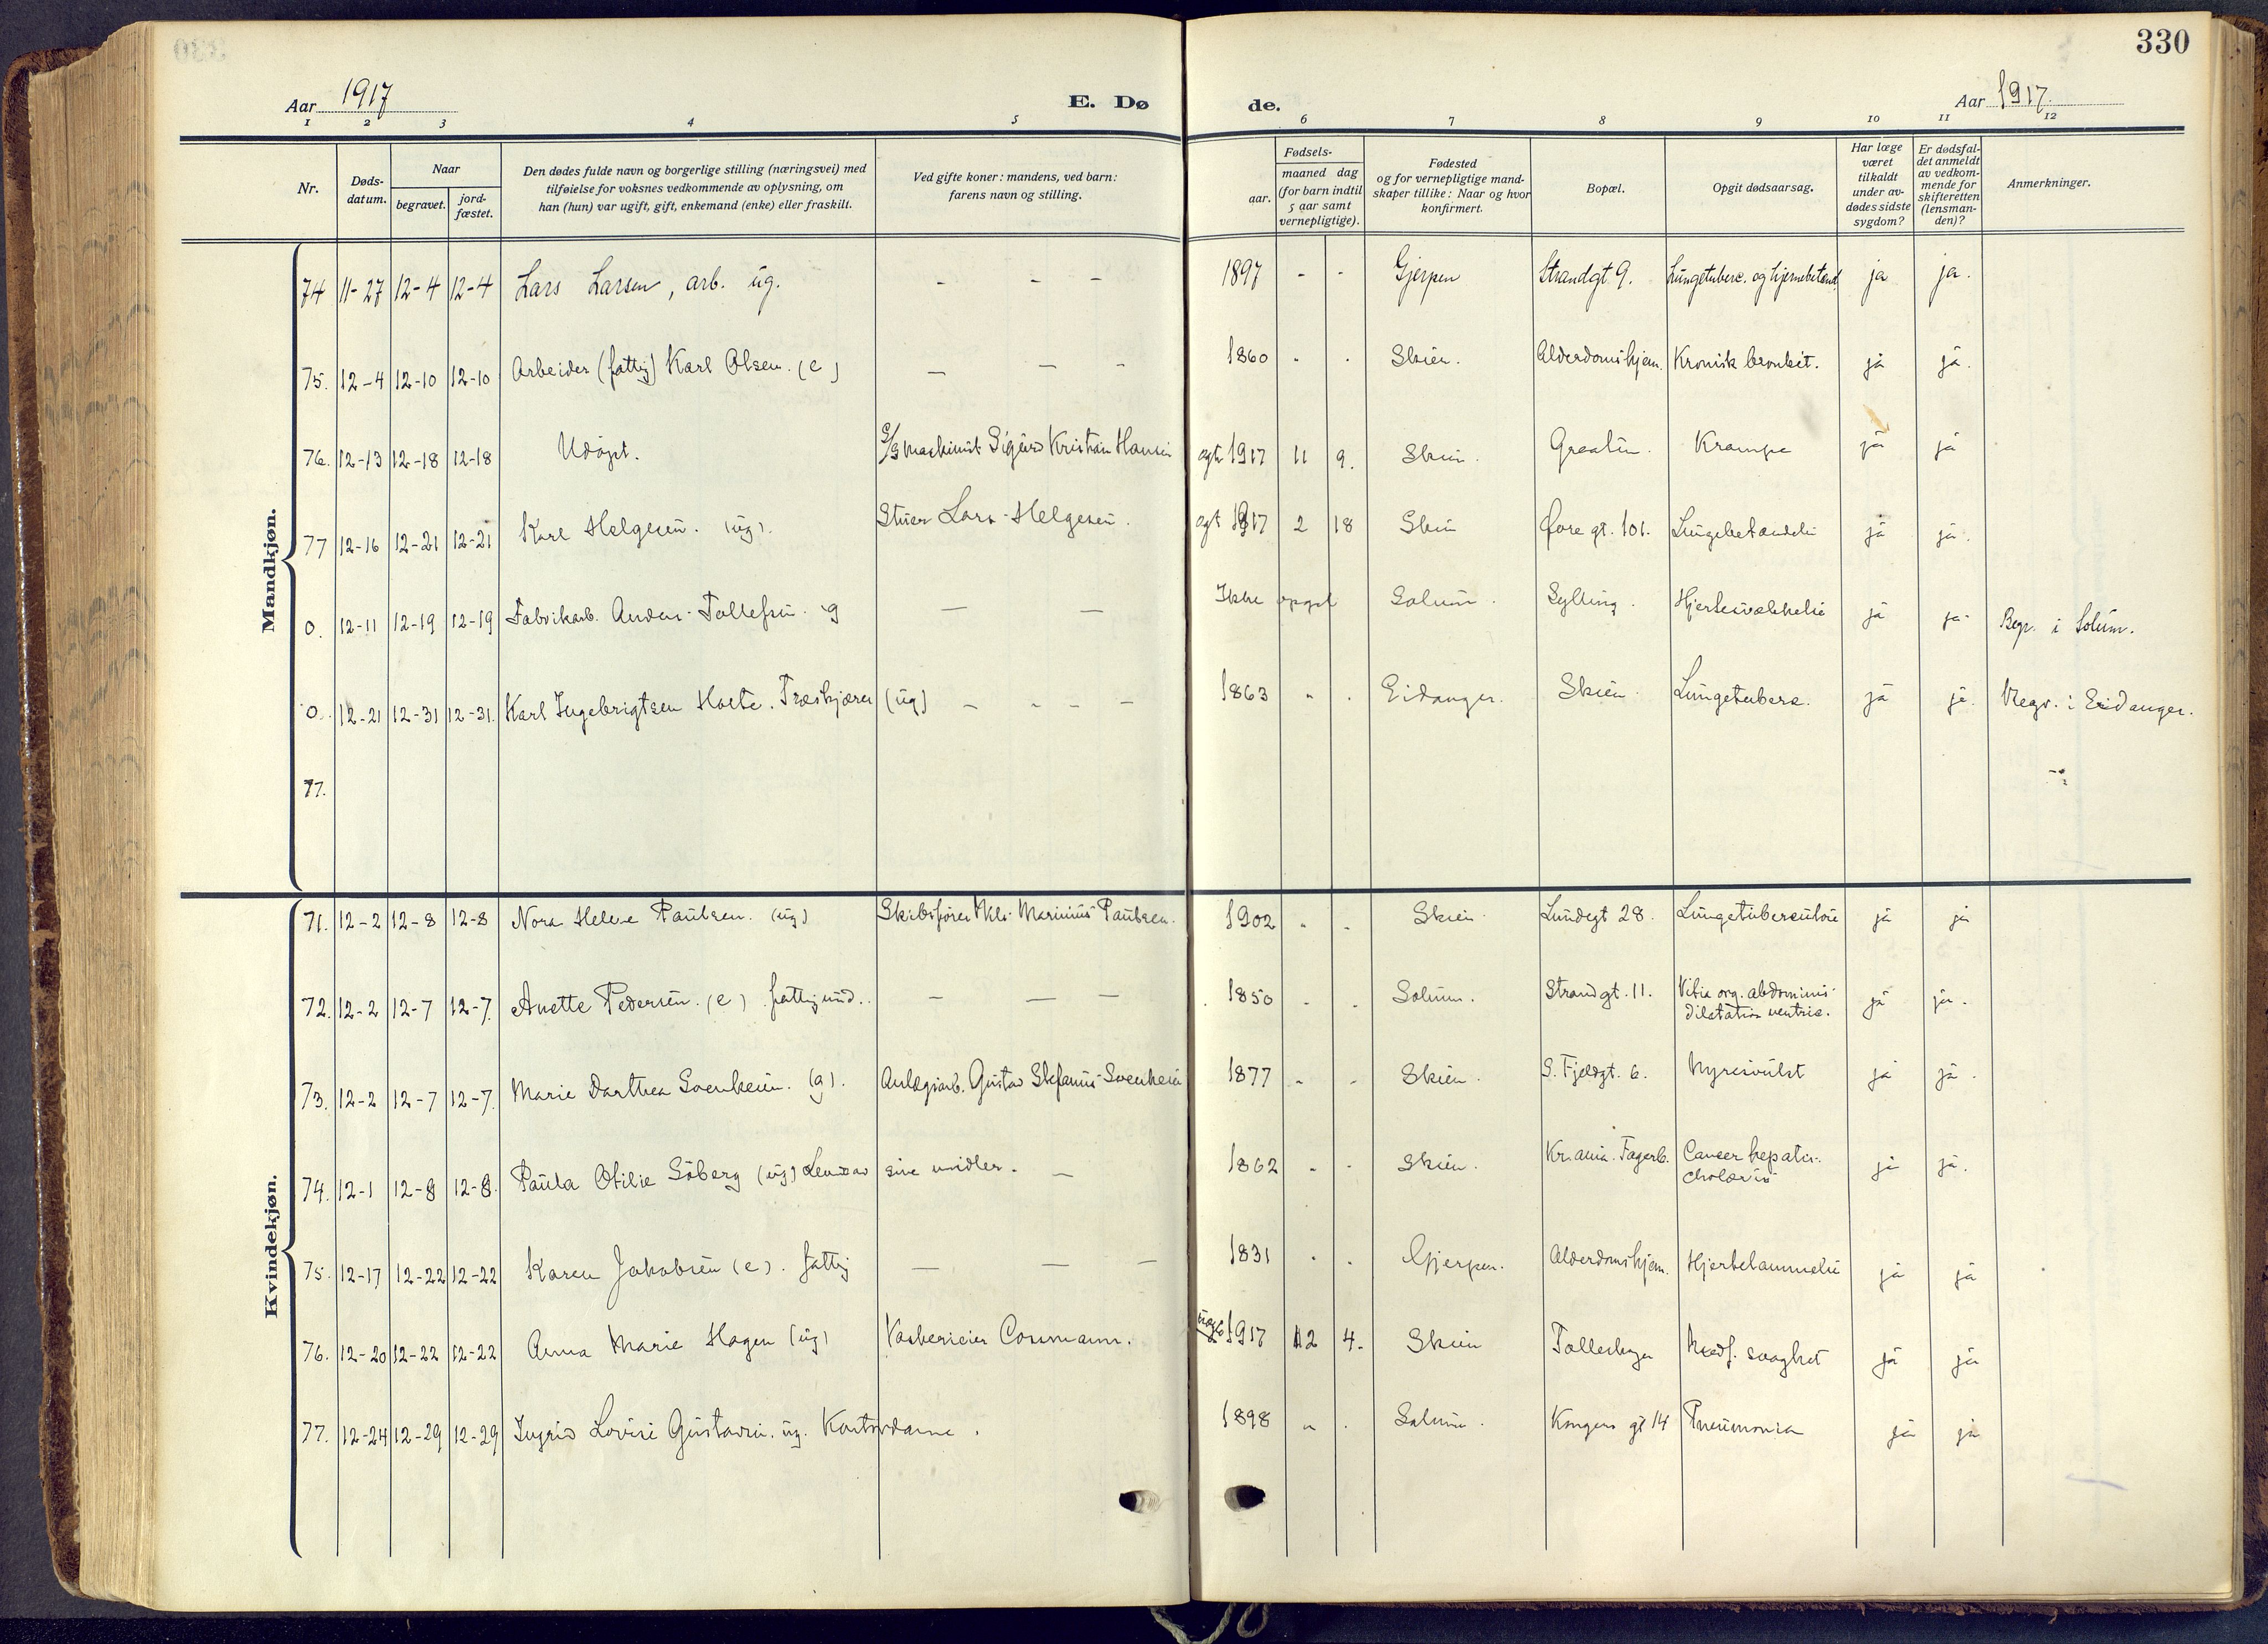 330
Aar 1917
E. Dø
de.
Aar 1917.
1 2 3 4 5 6 7 8 9 10 11 12
Nr.
Døds-
datum.
Naar
begravet.
jord-
fæstet.
Den dødes fulde navn og borgerlige stilling (næringsvei) med
tilføielse for voksnes vedkommende av oplysning, om
han (hun) var ugift, gift, enkemand (enke) eller fraskilt.
Ved gifte koner: mandens, ved barn:
farens navn og stilling.
Fødsels-
aar.
maaned dag
(for barn indtil
5 aar samt
vernepligtige).
Fødested
og for vernepligtige mand-
skaper tillike: Naar og hvor
konfirmert.
Bopæl.
Opgit dødsaarsag.
Har læge
været
tilkaldt
under av-
dødes sidste
sygdom?
Er dødsfal-
det anmeldt
av vedkom-
mende for
skifteretten
(lensman-
den)?
Anmerkninger.
Mandkjøn.
74 11-27 12-4 12-4 Lars Larsen, arb. ug. - - - 1897 - - Gjerpen Strandgt 9. Lungetuberc. og hjernebetend. ja ja.
75. 12-4 12-10 12-10 Arbeider (fattig) Karl Olsen. (e) — — - 1860 - - Skien. Alderdomshjem. Kronisk bronkit. ja ja.
76. 12-13 12-18 12-18 Udøpt. Maskinist Sigurd Kristian Hansen egte 1917 11 9. Skien. Graaten. Krampe ja ja
77 12-16 12-21 12-21 Karl Helgesen. (ug). Stuer Lars Helgesen. egt 1917 2 18 Skien Øvre gt. 101. Lungebetændelse ja ja.
0. 12-11 12-19 12-19 Fabrikarb. Anders Tollefsen g — — Ikke opgit Solum. Sylling. Hjertesvækkelse ja ja. Begr. i Solum.
0. 12-21 12-31 12-31. Karl Ingebrigtsen Holte. Træskjærer (ug) - - - - 1863 - - Eidanger. Skien. Lungetuberc. ja ja. Begr. i Eidanger.
77.
Kvindekjøn.
71. 12-2 12-8 12-8 Nora Helene Paulsen. (ug) Skibsfører Nils Marinius Paulsen. 1902 - - Skien. Lundegt 28. Lungetuberculose ja ja
72. 12-2 12-7 12-7. Anette Pedersen. (e). fattigund. — — — 1850 - - Solum. Strandgt. 11. Vitia org. abdominis
dilatatio ventric. ja ja.
73. 12-2 12-7 12-7. Marie Darthea Svenkesen. (g). Anlægsarb. Gustav Stefanus Svenkesen 1877 - - Skien. S. Fjeldgt. 6. Nyresvulst ja ja.
74. 12-1 12-8 12-8. Paula Otilie Söberg (ug) Lever av sine midler. — 1862 - - Skien. Kr.ania. Fagerb. Cancer hepatis. ja ja.
75. 12-17 12-22 12-22 Karen Jakobsen (e). fattig — — — 1831 - - Gjerpen. Alderdomshjem. Hjertelammelse ja ja
76. 12-20 12-22 12-22 Anna Marie Hagen (ug) 1917 12 4. Skien Follestad Medf. svaghet ja ja
77. 12-24 12-29 12-29 Ingrid Lovise Gustavsen. ug. Kontordame. 1898 - - Solum. Kongens gt 14 Pneumonia ja ja